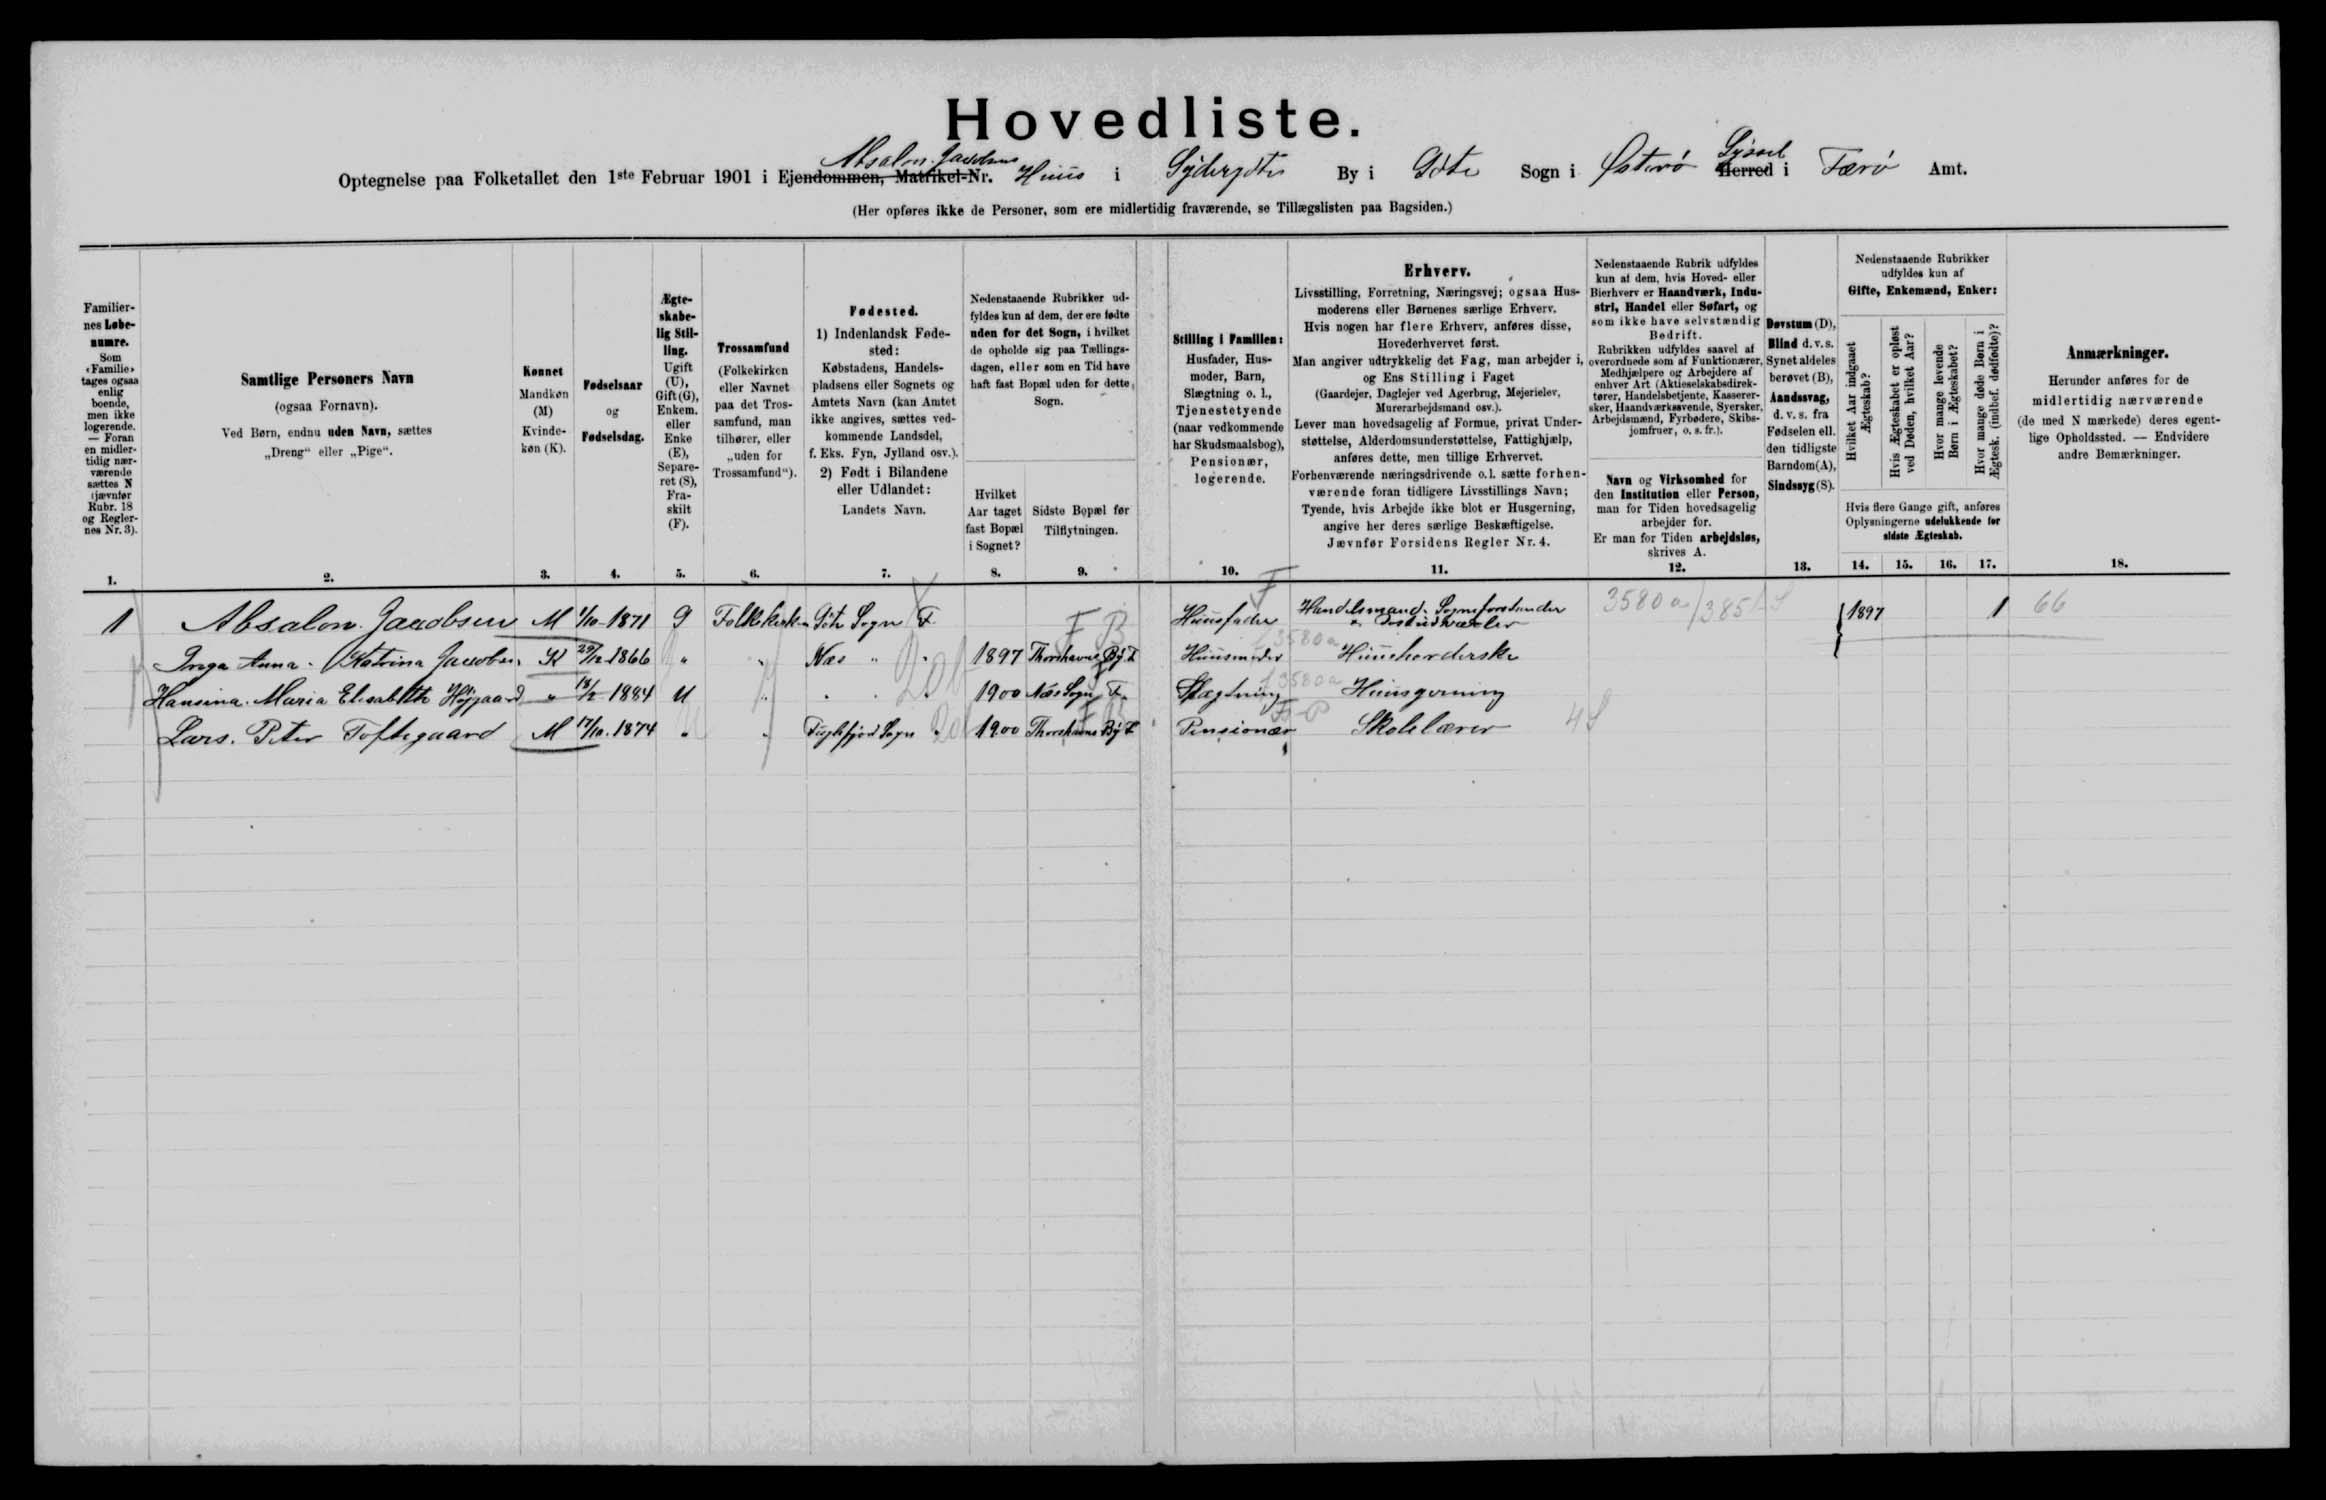 Hovedliste.
Absalon Jacobsens
Optegnelse paa Folketallet den 1ste Februar 1901 i Ejendommen, Matrikel-Nr. Huus i Sydergöte By i Göte Sogn i Østerö Herred Sÿssel i Færö Amt.
(Her opføres ikke de Personer, som ere midlertidig fraværende, se Tillægslisten paa Bagsiden.)
Familier-
nes Løbe-
numre.
Som
«Familie»
tages ogsaa
enlig
boende,
men ikke
logerende.
— Foran
en midler-
tidig nær-
værende
sættes N
(jævnfør
Rubr. 18
og Regler-
nes Nr. 3).
1.
Samtlige Personers Navn
(ogsaa Fornavn).
Ved Børn, endnu uden Navn, sættes
„Dreng“ eller „Pige“.
2.
Kønnet
Mandkøn
(M)
Kvinde-
køn (K).
3.
Fødselsaar
og
Fødselsdag.
4.
Ægte-
skabe-
lig Stil-
ling.
Ugift
(U),
Gift (G),
Enkem.
eller
Enke
(E),
Separe-
ret (S),
Fra-
skilt
(F).
5.
Trossamfund
(Folkekirken
eller Navnet
paa det Tros-
samfund, man
tilhører, eller
„uden for
Trossamfund“).
6.
Fødested.
1) Indenlandsk Føde-
sted:
Købstadens, Handels-
pladsens eller Sognets og
Amtets Navn (kan Amtet
ikke angives, sættes ved-
kommende Landsdel,
f. Eks. Fyn, Jylland osv.).
2) Født i Bilandene
eller Udlandet:
Landets Navn.
7.
Nedenstaaende Rubrikker ud-
fyldes kun af dem, der ere fødte
uden for det Sogn, i hvilket
de opholde sig paa Tællings-
dagen, eller som en Tid have
haft fast Bopæl uden for dette
Sogn.
Hvilket
Aar taget
fast Bopæl
i Sognet?
8.
Sidste Bopæl før
Tilflytningen.
9.
Stilling i Familien:
Husfader, Hus-
moder, Barn,
Slægtning o. l.,
Tjenestetyende
(naar vedkommende
har Skudsmaalsbog),
Pensionær,
logerende.
10.
Erhverv.
Livsstilling, Forretning, Næringsvej; ogsaa Hus-
moderens eller Børnenes særlige Erhverv.
Hvis nogen har flere Erhverv, anføres disse,
Hovederhvervet først.
Man angiver udtrykkelig det Fag, man arbejder i,
og Ens Stilling i Faget
(Gaardejer, Daglejer ved Agerbrug, Mejerielev,
Murerarbejdsmand osv.).
Lever man hovedsagelig af Formue, privat Under-
støttelse, Alderdomsunderstøttelse, Fattighjælp,
anføres dette, men tillige Erhvervet.
Forhenværende næringsdrivende o. l. sætte forhen-
værende foran tidligere Livsstillings Navn;
Tyende, hvis Arbejde ikke blot er Husgerning,
angive her deres særlige Beskæftigelse.
Jævnfør Forsidens Regler Nr. 4.
11.
Nedenstaaende Rubrik udfyldes
kun af dem, hvis Hoved- eller
Bierhverv er Haandværk, Indu-
stri, Handel eller Søfart, og
som ikke have selvstændig
Bedrift.
Rubrikken udfyldes saavel af
overordnede som af Funktionærer,
Medhjælpere og Arbejdere af
enhver Art (Aktieselskabsdirek-
tører, Handelsbetjente, Kasserer-
sker, Haandværkssvende, Syersker,
Arbejdsmænd, Fyrbødere, Skibs-
jomfruer, o. s. fr.).
Navn og Virksomhed for
den Institution eller Person,
man for Tiden hovedsagelig
arbejder for.
Er man for Tiden arbejdsløs,
skrives A.
12.
Døvstum (D),
Blind d. v. s.
Synet aldeles
berøvet (B),
Aandssvag,
d. v. s. fra
Fødselen ell.
den tidligste
Barndom (A),
Sindssyg (S).
13.
Nedenstaaende Rubrikker
udfyldes kun af
Gifte, Enkemænd, Enker:
Hvilket Aar indgaaet
Ægteskab?
Hvis Ægteskabet er opløst
ved Døden, hvilket Aar?
Hvor mange levende
Børn i Ægteskabet?
Hvor mange døde Børn i
Ægtesk. (indbef. dødfødte)?
Hvis flere Gange gift, anføres
Oplysningerne udelukkende for
sidste Ægteskab.
14. 15. 16. 17.
Anmærkninger.
Herunder anføres for de
midlertidig nærværende
(de med N mærkede) deres egent-
lige Opholdssted. — Endvidere
andre Bemærkninger.
18.
1 Absalon Jacobsen M 1/10-1871 G Folkekirken Göte Sogn F. Huusfader Handelsmand, Sogneforstander 3580 a 1897 1 66
Inga Anna Katrina Jacobsen K 29/12-1866 " " Næs " " 1897 Thorshavns Bÿ F Huusmoder 3580 a Huusholderske
Hansina Maria Elisabeth Höjgaard " 18/2-1884 U " " " " 1900 Næs Sogn F. Slægtning 3580 a Huusgerning
Lars Peter Toftegaard M 17/10-1874 " " Fuglefjord Sogn " 1900 Thorshavns Bÿ F Pensionær Skolelærer 4 S